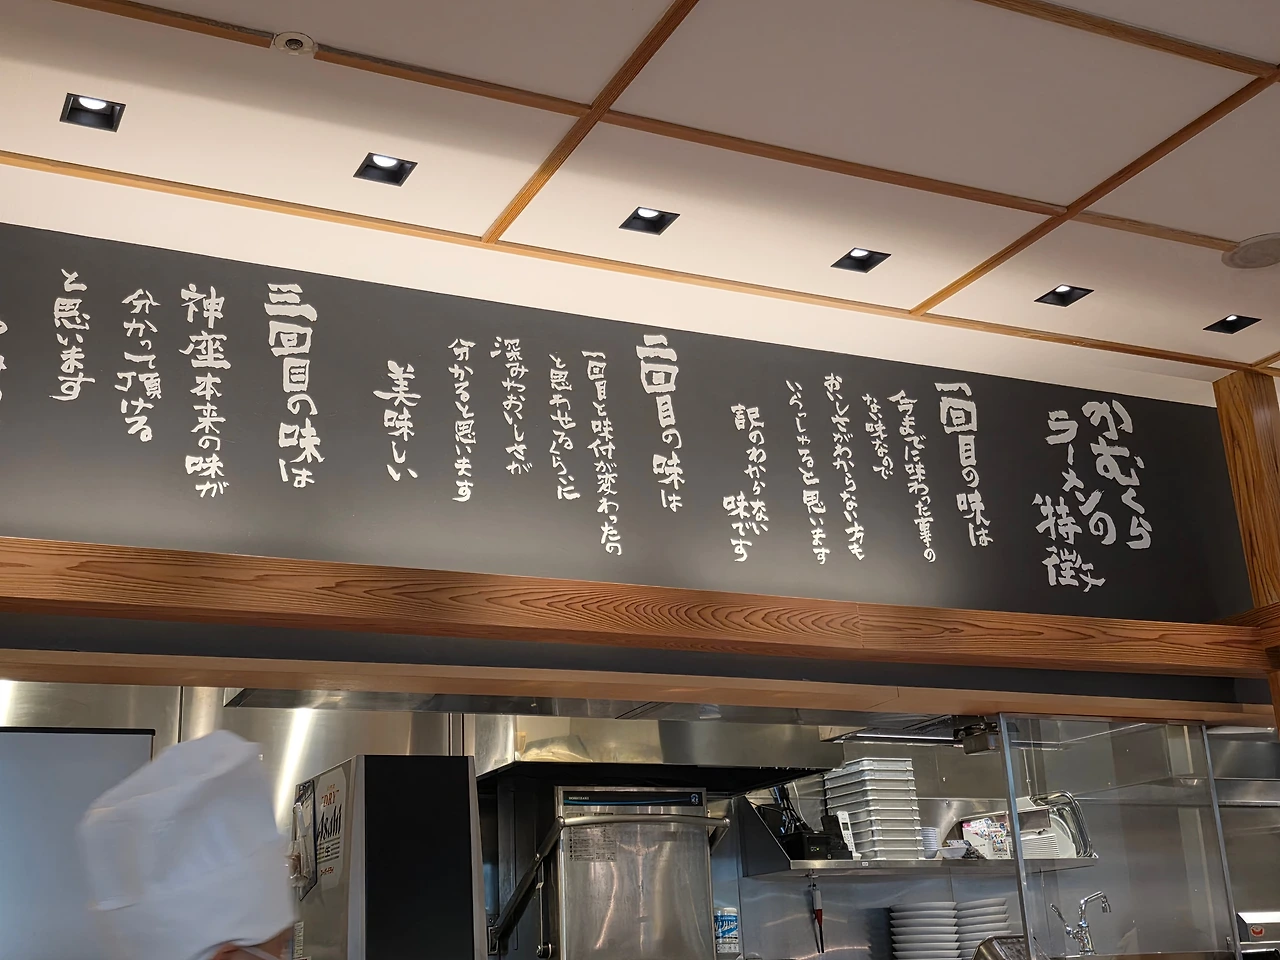 かむくら
ラーメンの
特徴
一回目の味は
今までに味わった事の
ない味なので
おいしさがわからない方も
いらっしゃると思います
訳のわからない
味です
二回目の味は
一回目と味付が変わったの
と思わせるくらいに
深みやおいしさが
分かると思います
美味しい
三回目の味は
神座本来の味が
分かって頂ける
と思います
DRY
Asahi